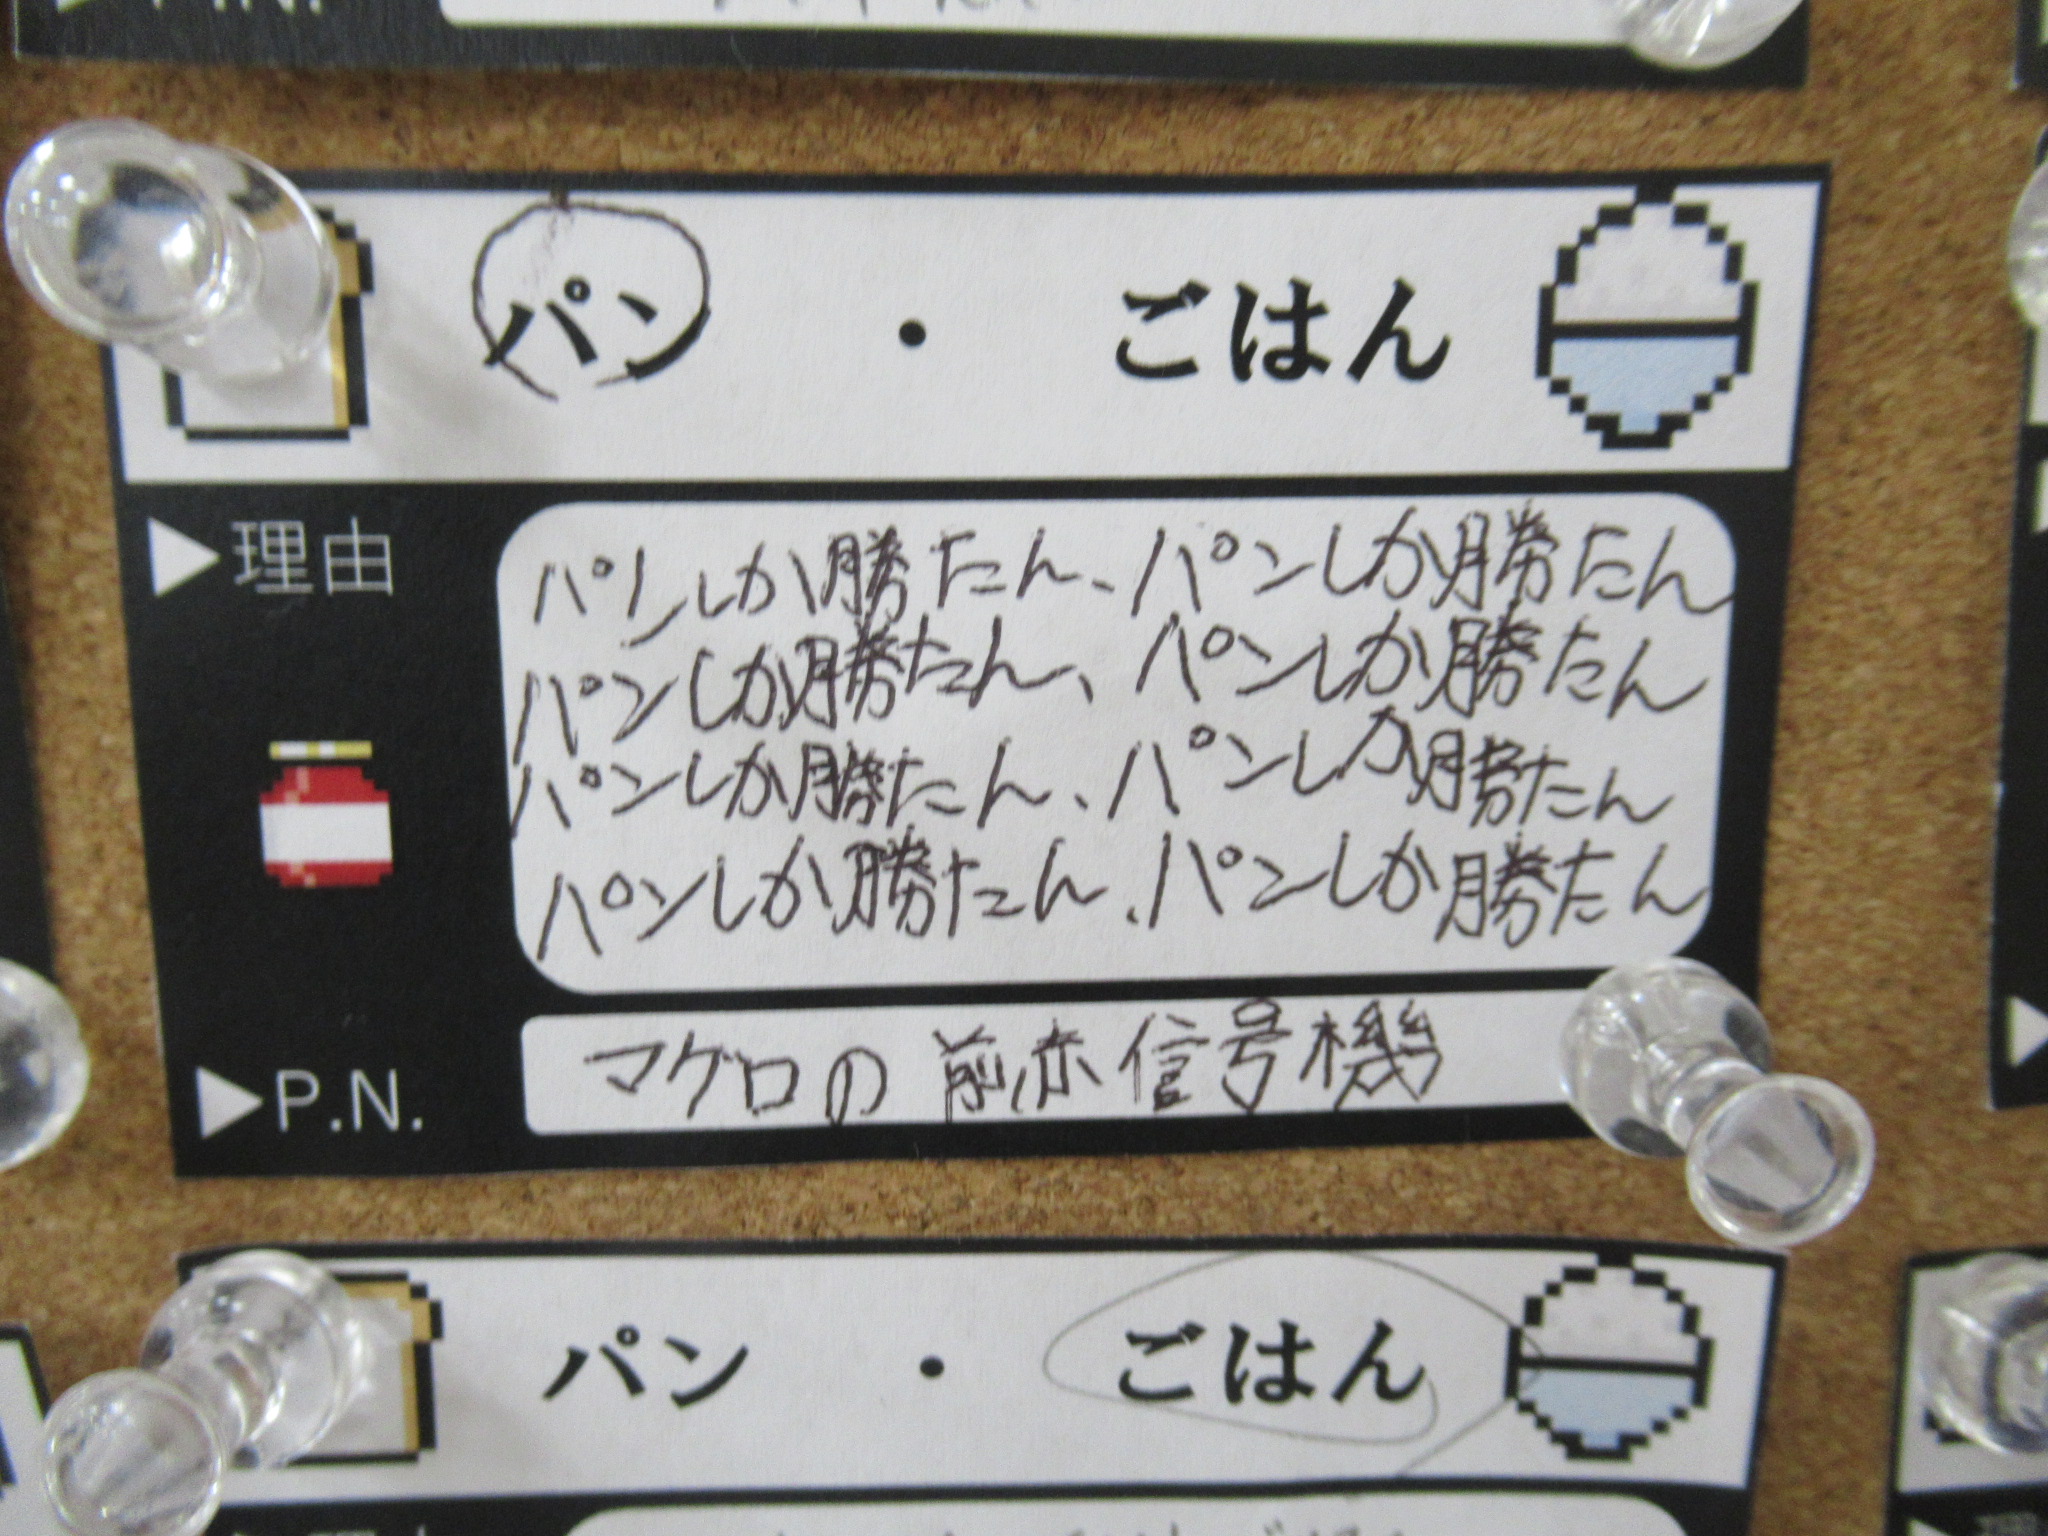 パン ・ ごはん
理由
パンしか勝たん、パンしか勝たん
パンしか勝たん、パンしか勝たん
パンしか勝たん、パンしか勝たん
パンしか勝たん、パンしか勝たん
P.N.
マグロの前赤信号機
パン ・ ごはん